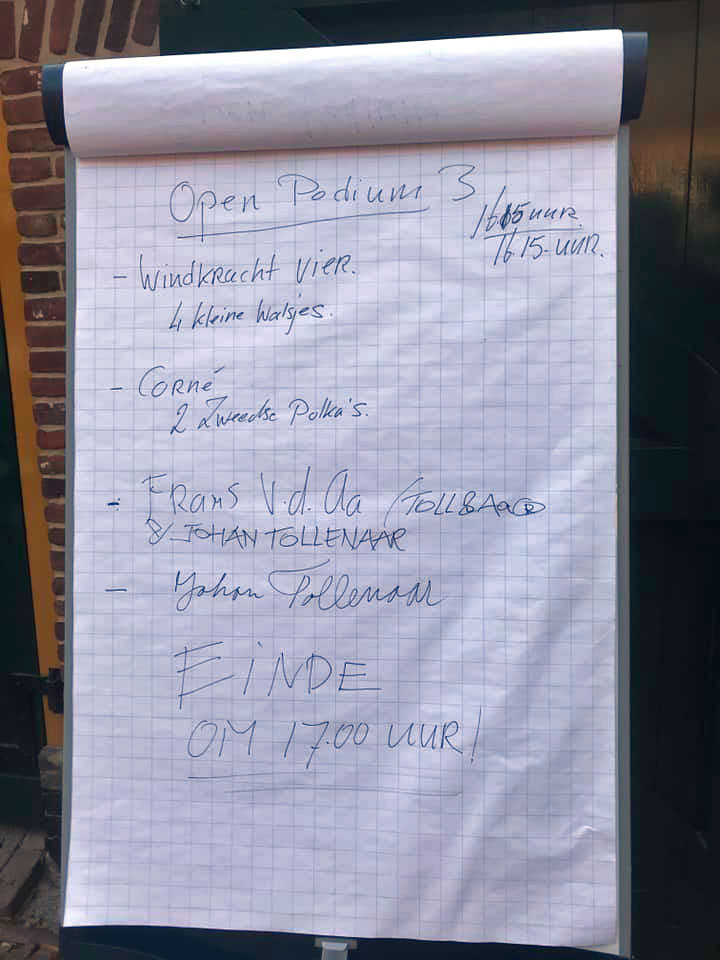 Open Podium 3
16.15 uur.
- Windkracht Vier.
4 kleine Walsjes.
- Corné
2 Zweedse Polka's.
- Frans V.d. Aa
& JOHAN TOLLENAAR
- Johan Tollenaar
EiNDE
OM 17.00 UUR!